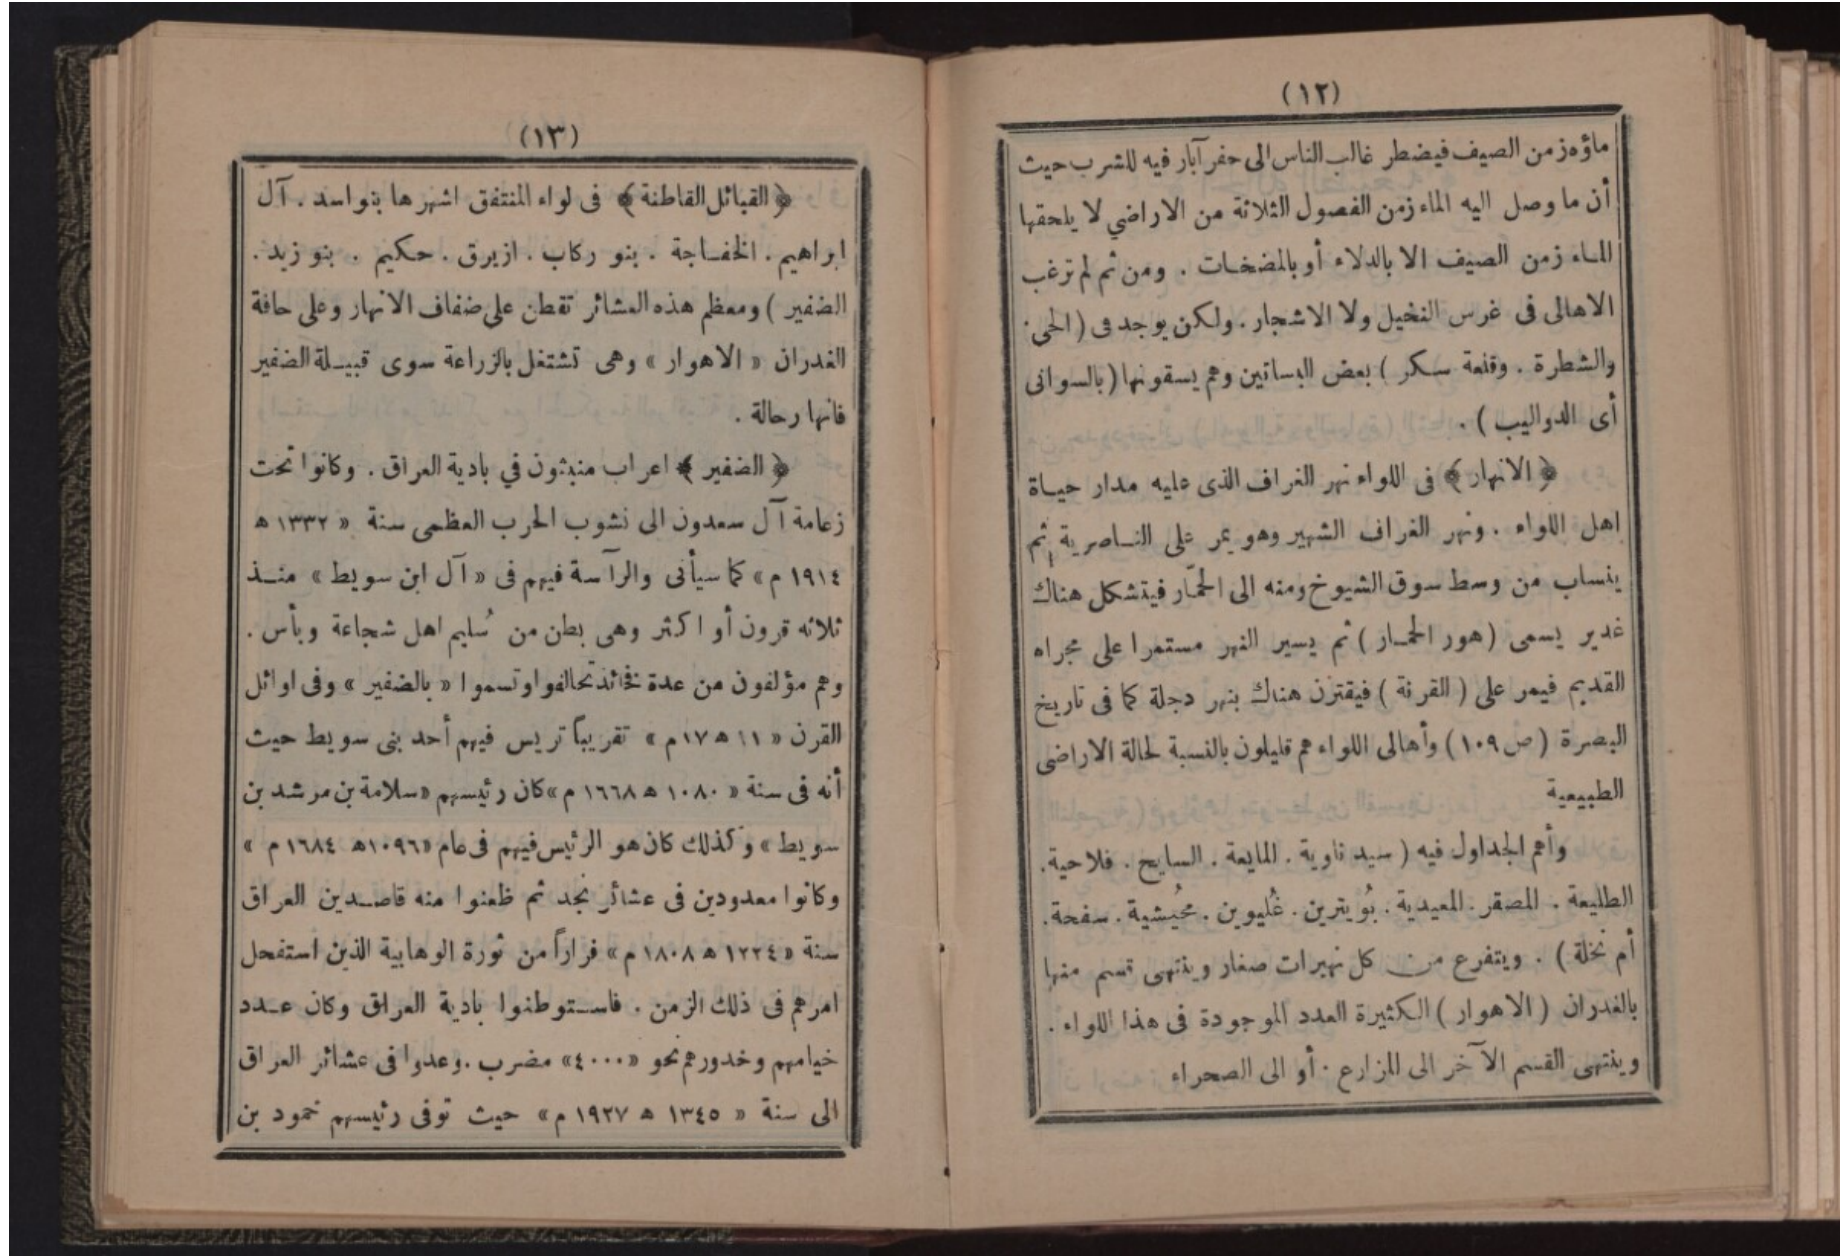 (١٢)
ماؤه زمن الصيف فيضطر غالب الناس الى حفر آبار فيه للشرب حيث
أن ما وصل اليه الماء زمن الفصول الثلاثة من الاراضي لا يلحقها
الماء زمن الصيف الا بالدلاء أو بالمضخات . ومن ثم لم ترغب
الاهالى فى غرس النخيل ولا الاشجار . ولكن يوجد فى ( الحى .
والشطرة . وقلعة سكر ) بعض البساتين وهم يسقونها ( بالسوانى
أى الدواليب ) .
﴿ الانهار ﴾ فى اللواء نهر الغراف الذى عليه مدار حياة
اهل اللواء . ونهر الغراف الشهير وهو يمر على الناصرية ثم
ينساب من وسط سوق الشيوخ ومنه الى الحمّار فيتشكل هناك
غدير يسمى ( هور الحمار ) ثم يسير النهر مستمرا على مجراه
القديم فيمر على ( القرنة ) فيقترن هناك بنهر دجلة كما فى تاريخ
البصرة ( ص ١٠٩ ) وأهالى اللواء هم قليلون بالنسبة لحالة الاراضى
الطبيعية
وأهم الجداول فيه ( سيد ناوية . المايعة . السايح . فلاحية .
الطليعة . المصقر . المعيدية . بُويترين . غُليوين . محُيشية . سفحة .
أم نخلة ) . ويتفرع من كل نهيرات صغار وينتهى قسم منها
بالغدران ( الاهوار ) الكثيرة العدد الموجودة فى هذا اللواء .
وينتهى القسم الآخر الى المزارع . أو الى الصحراء
(١٣)
﴿ القبائل القاطنة ﴾ فى لواء المنتفق اشهرها بنو اسد . آل
ابراهيم . الخفاجة . بنو ركاب . ازيرق . حكيم . بنو زيد .
الضفير ) ومعظم هذه العشائر تقطن على ضفاف الانهار وعلى حافة
الغدران « الاهوار » وهى تشتغل بالزراعة سوى قبيلة الضفير
فانها رحالة .
﴿ الضفير ﴾ اعراب منبثون في بادية العراق . وكانوا تحت
زعامة آل سعدون الى نشوب الحرب العظمى سنة « ١٣٣٢ ه
١٩١٤ م » كما سيأتى والرآسة فيهم فى « آل ابن سويط » منذ
ثلاثه قرون أو اكثر وهى بطن من سُليم اهل شجاعة وبأس .
وهم مؤلفون من عدة فخائذ تحالفوا وتسموا « بالضفير » وفى اوائل
القرن « ١١ ه ١٧ م » تقريباً تريس فيهم أحد بنى سويط حيث
أنه فى سنة « ١٠٨٠ ه ١٦٦٨ م » كان رئيسهم « سلامة بن مرشد بن
سويط » وكذلك كان هو الرئيس فيهم فى عام « ١٠٩٦ه ١٦٨٤ م »
وكانوا معدودين فى عشائر نجد ثم ظعنوا منه قاصدين العراق
سنة « ١٢٢٤ ه ١٨٠٨ م » فراراً من ثورة الوهابية الذين استفحل
امرهم فى ذلك الزمن . فاستوطنوا بادية العراق وكان عدد
خيامهم وخدورهم نحو « ٤٠٠٠ » مضرب . وعدوا فى عشائر العراق
الى سنة « ١٣٤٥ ه ١٩٢٧ م » حيث توفى رئيسهم حمود بن